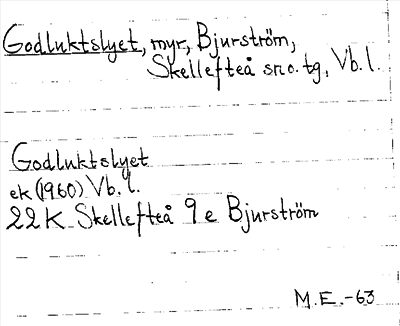 Godluktslyet, myr, Bjurström,
Skellefteå sn o. tg, Vb. l.
Godluktslyet
ek (1960) Vb. l.
22 K Skellefteå 9 e Bjurström
M.E.-63